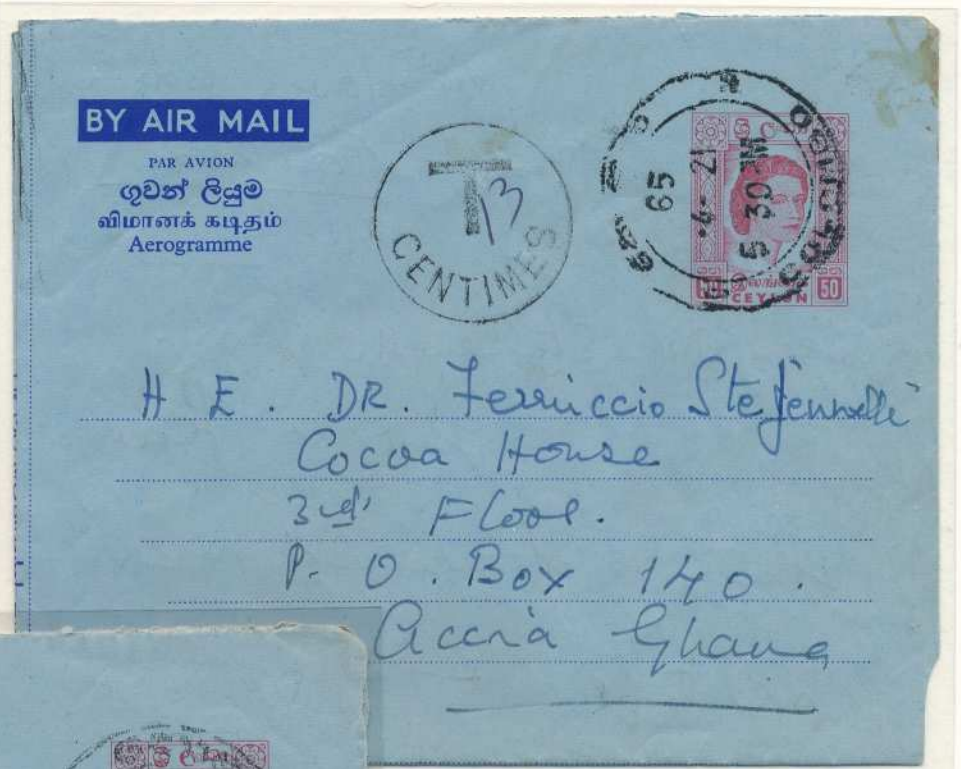 BY AIR MAIL
PAR AVION
ගුවන් ලියුම
விமானக் கடிதம்
Aerogramme
T 13
CENTIMES
65
-4- 21
5 30 PM
50
CEYLON 50
H E . DR. Ferruccio Stefennelli
Cocoa House
3rd Floor.
P. O. Box 140.
Accra Ghana